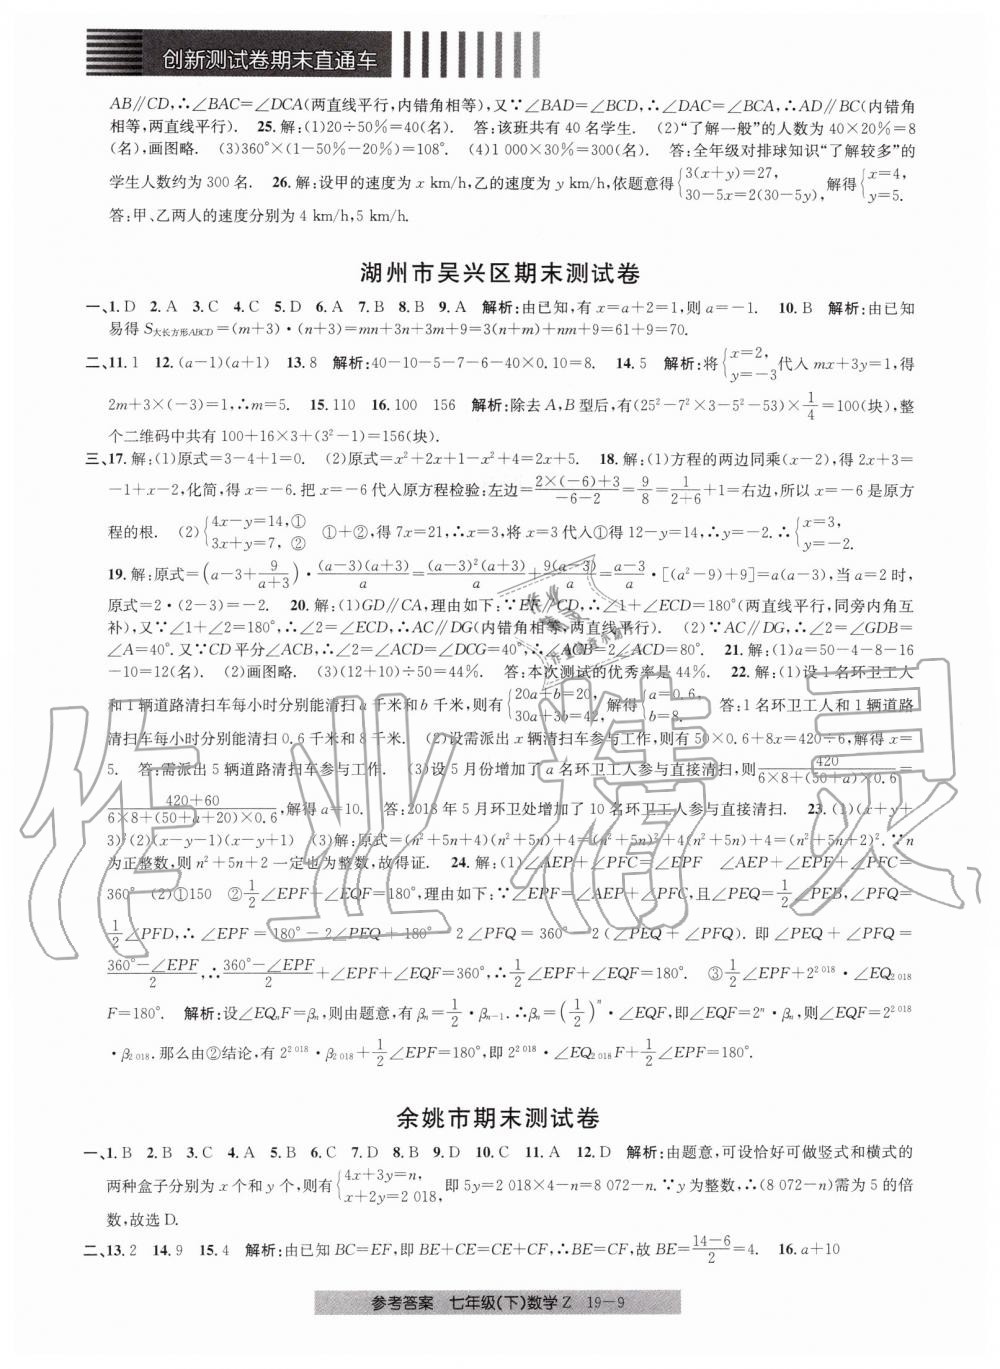 创新测试卷期末直通车
AB∥CD,∴∠BAC=∠DCA(两直线平行,内错角相等),又∵∠BAD=∠BCD,∴∠DAC=∠BCA,∴AD∥BC(内错角
相等,两直线平行). 25.解:(1)20÷50%=40(名). 答:该班共有 40 名学生. (2)“了解一般”的人数为 40×20%=8
(名),画图略. (3)360°×(1-50%-20%)=108°. (4)1 000×30%=300(名). 答:全年级对排球知识“了解较多”的
学生人数约为 300 名. 26.解:设甲的速度为 x km/h,乙的速度为 y km/h,依题意得{3(x+y)=27, 30-5x=2(30-5y), 解得{x=4, y=5.
答:甲、乙两人的速度分别为 4 km/h,5 km/h.
湖州市吴兴区期末测试卷
一、1.D 2.A 3.C 4.C 5.D 6.A 7.B 8.B 9.A 解析:由已知,有 x=a+2=1,则 a=-1. 10.B 解析:由已知
易得 S大长方形ABCD=(m+3)·(n+3)=mn+3n+3m+9=3(n+m)+nm+9=61+9=70.
二、11.1 12.(a-1)(a+1) 13.8 解析:40-10-5-7-6-40×0.10=8. 14.5 解析:将{x=2, y=-3代入 mx+3y=1,得
2m+3×(-3)=1,∴m=5. 15.110 16.100 156 解析:除去 A,B 型后,有(25²-7²×3-5²-53)×1/4=100(块),整
个二维码中共有 100+16×3+(3²-1)=156(块).
三、17.解:(1)原式=3-4+1=0. (2)原式=x²+2x+1-x²+4=2x+5. 18.解:(1)方程的两边同乘(x-2),得 2x+3=
-1+x-2,化简,得 x=-6.把 x=-6 代入原方程检验:左边=2×(-6)+3/-6-2=9/8=1/2+6+1=右边,所以 x=-6 是原方
程的根. (2){4x-y=14,① 3x+y=7, ② ①+②,得 7x=21,∴x=3,将 x=3 代入①得 12-y=14,∴y=-2.∴{x=3, y=-2.
19.解:原式=(a-3+9/a+3)·(a-3)(a+3)/a=(a-3)²(a+3)/a+9(a-3)/a=a-3/a·[(a²-9)+9]=a(a-3),当 a=2 时,
原式=2·(2-3)=-2. 20.解:(1)GD∥CA,理由如下:∵EF∥CD,∴∠1+∠ECD=180°(两直线平行,同旁内角互
补),又∵∠1+∠2=180°,∴∠2=∠ECD,∴AC∥DG(内错角相等,两直线平行). (2)∵AC∥DG,∴∠2=∠GDB=
∠A=40°.又∵CD平分∠ACB,∴∠2=∠ACD=∠DCG=40°,∴∠ACB=2∠ACD=80°. 21.解:(1)a=50-4-8-16
-10=12(名). (2)画图略. (3)(12+10)÷50=44%. 答:本次测试的优秀率是 44%. 22.解:(1)设 1 名环卫工人
和 1 辆道路清扫车每小时分别能清扫 a 千米和 b 千米,则有{20a+b=20, 30a+3b=42, 解得{a=0.6, b=8. 答:1 名环卫工人和 1 辆道路
清扫车每小时分别能清扫 0.6 千米和 8 千米. (2)设需派出 x 辆清扫车参与工作,则有 50×0.6+8x=420÷6,解得 x=
5. 答:需派出 5 辆道路清扫车参与工作. (3)设 5 月份增加了 a 名环卫工人参与直接清扫,则420/6×8+(50+a)×0.6=
420+60/6×8+(50+a+20)×0.6,解得 a=10. 答:2018 年 5 月环卫处增加了 10 名环卫工人参与直接清扫. 23.(1)(x+y+
3)² (2)(x-y-1)(x-y+1) (3)解:原式=(n²+5n+4)(n²+5n+6)+1=(n²+5n)²+4(n²+5n)+4=(n²+5n+2)².∵n
为正整数,则 n²+5n+2 一定也为整数,故得证. 24.解:(1)∠AEP+∠PFC=∠EPF ∠AEP+∠EPF+∠PFC=
360° (2)①150 ②1/2∠EPF+∠EQF=180°,理由如下:∵∠EPF=∠AEP+∠PFC,且∠PEQ=1/2∠PEB,∠PFQ=
1/2∠PFD,∴∠EPF=180°-2∠PEQ+180°-2∠PFQ=360°-2(∠PEQ+∠PFQ).即∠PEQ+∠PFQ=
360°-∠EPF/2,∴360°-∠EPF/2+∠EPF+∠EQF=360°,∴1/2∠EPF+∠EQF=180°. ③1/2∠EPF+2²⁰¹⁸·∠EQ₂₀₁₈
F=180°. 解析:设∠EQₙF=βₙ,则由题意,有 βₙ=1/2·βₙ₋₁.∴βₙ=(1/2)ⁿ·∠EQF,即∠EQF=2ⁿ·βₙ,则∠EQF=2²⁰¹⁸
·β₂₀₁₈.那么由②结论,有 2²⁰¹⁸·β₂₀₁₈+1/2∠EPF=180°,即 2²⁰¹⁸·∠EQ₂₀₁₈F+1/2∠EPF=180°.
余姚市期末测试卷
一、1.B 2.B 3.C 4.A 5.B 6.C 7.D 8.B 9.D 10.C 11.A 12.D 解析:由题意,可设恰好可做竖式和横式的
两种盒子分别为 x 个和 y 个,则有{4x+3y=n, x+2y=2 018, 即 5y=2 018×4-n=8 072-n.∵y 为整数,∴(8 072-n)需为 5 的倍
数,故选 D.
二、13.2 14.9 15.4 解析:由已知 BC=EF,即 BE+CE=CE+CF,∴BE=CF,故 BE=14-6/2=4. 16.a+10
参考答案 七年级(下)数学 Z 19-9
作业精灵